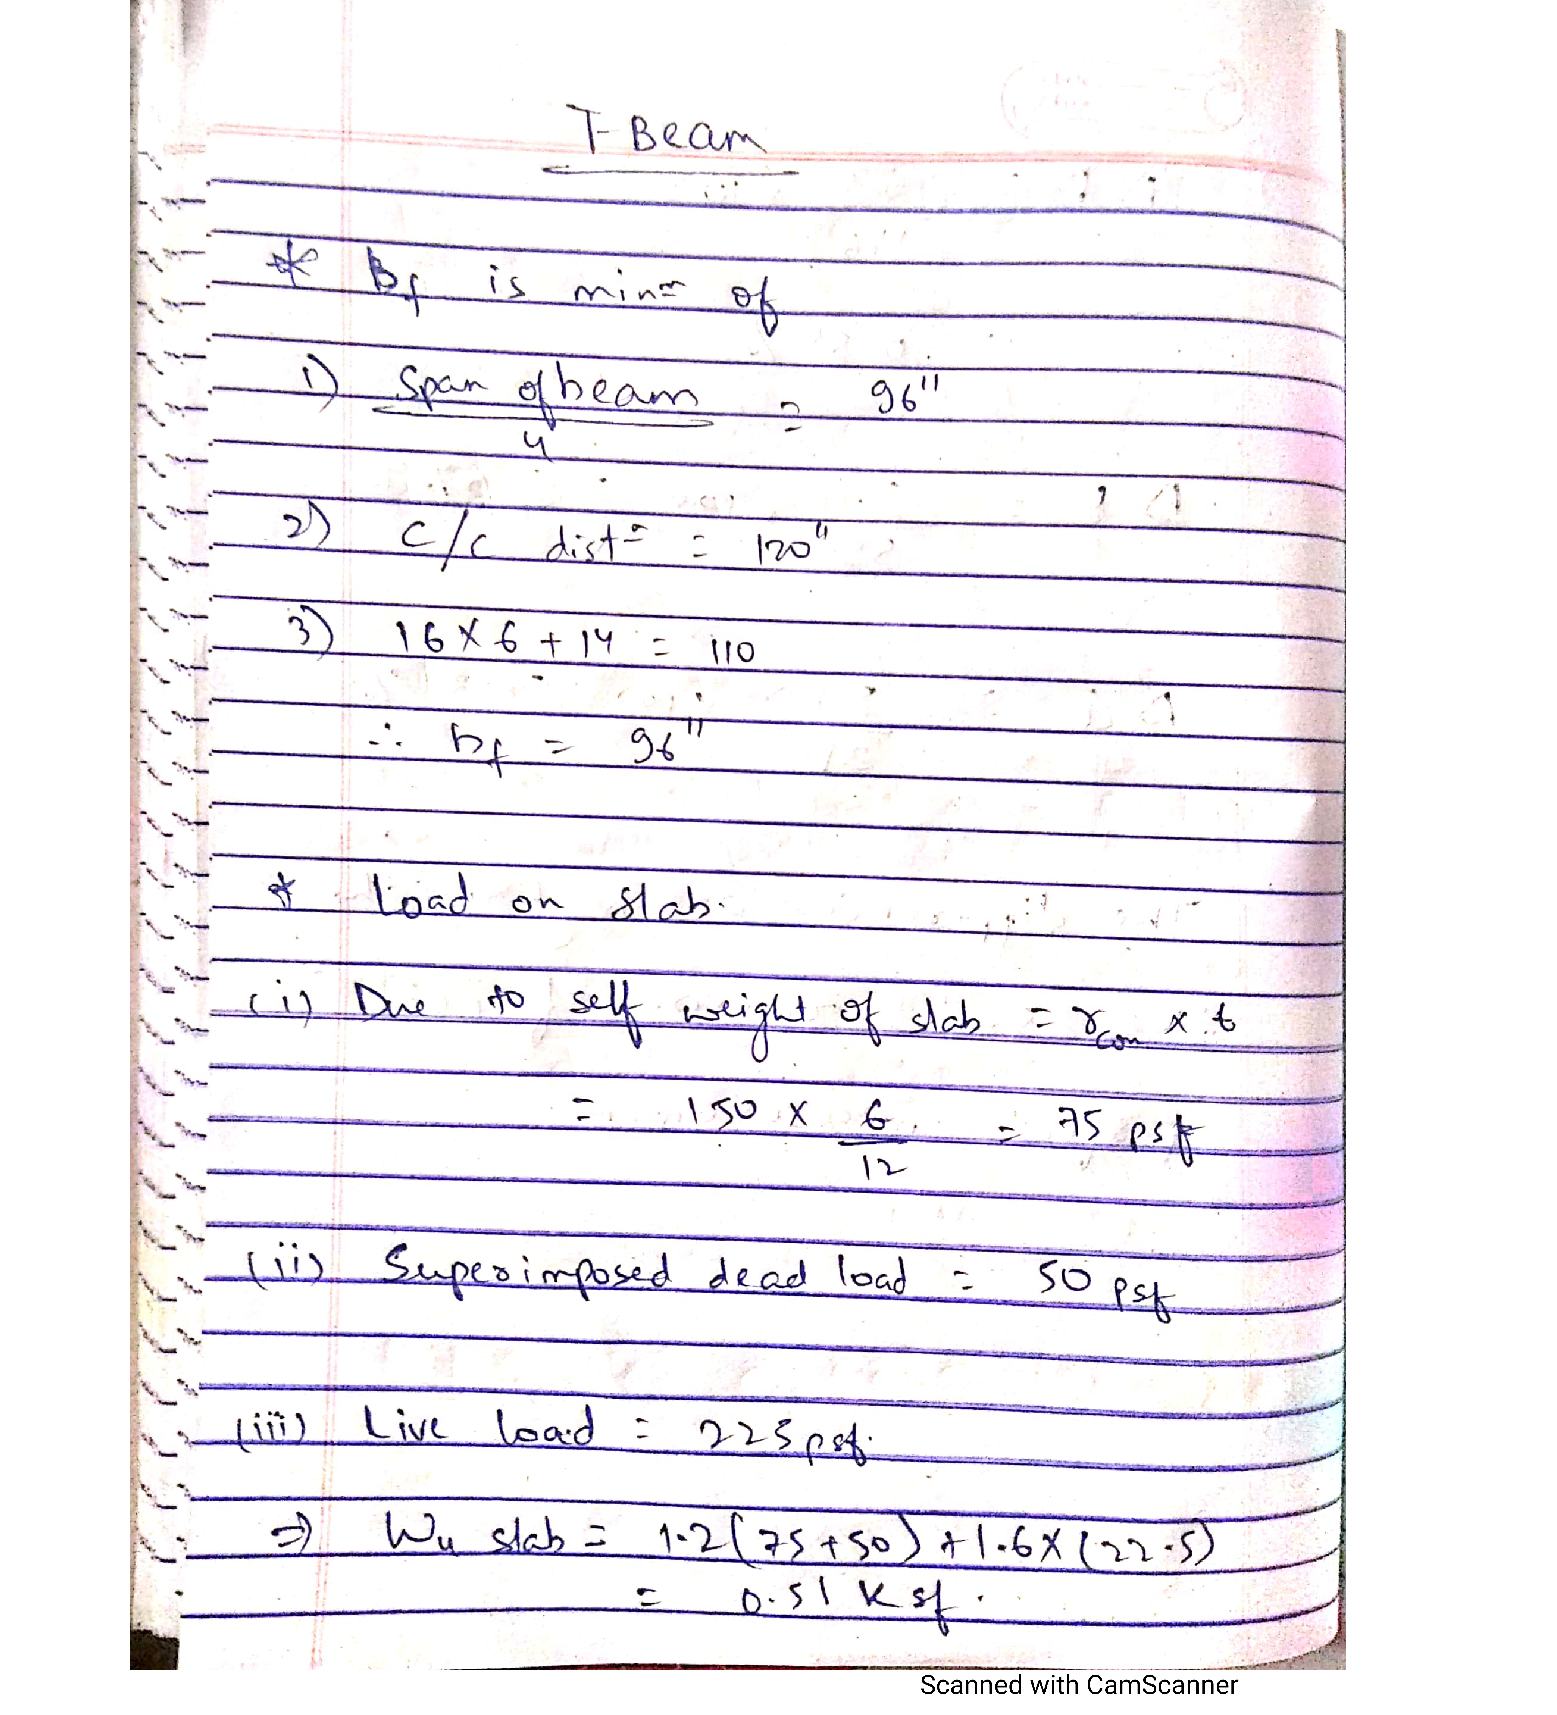 T-Beam
* bf is min= of
1) Span of beam / 4 = 96"
2) c/c dist= = 120"
3) 16 x 6 + 14 = 110
∴ bf = 96"
* Load on slab.
(i) Due to self weight of slab = γcon x t
= 150 x 6/12 = 75 psf
(ii) Superimposed dead load = 50 psf
(iii) Live load = 225 psf.
⇒ Wu slab = 1.2(75+50) + 1.6x(22.5)
= 0.51 ksf.
Scanned with CamScanner